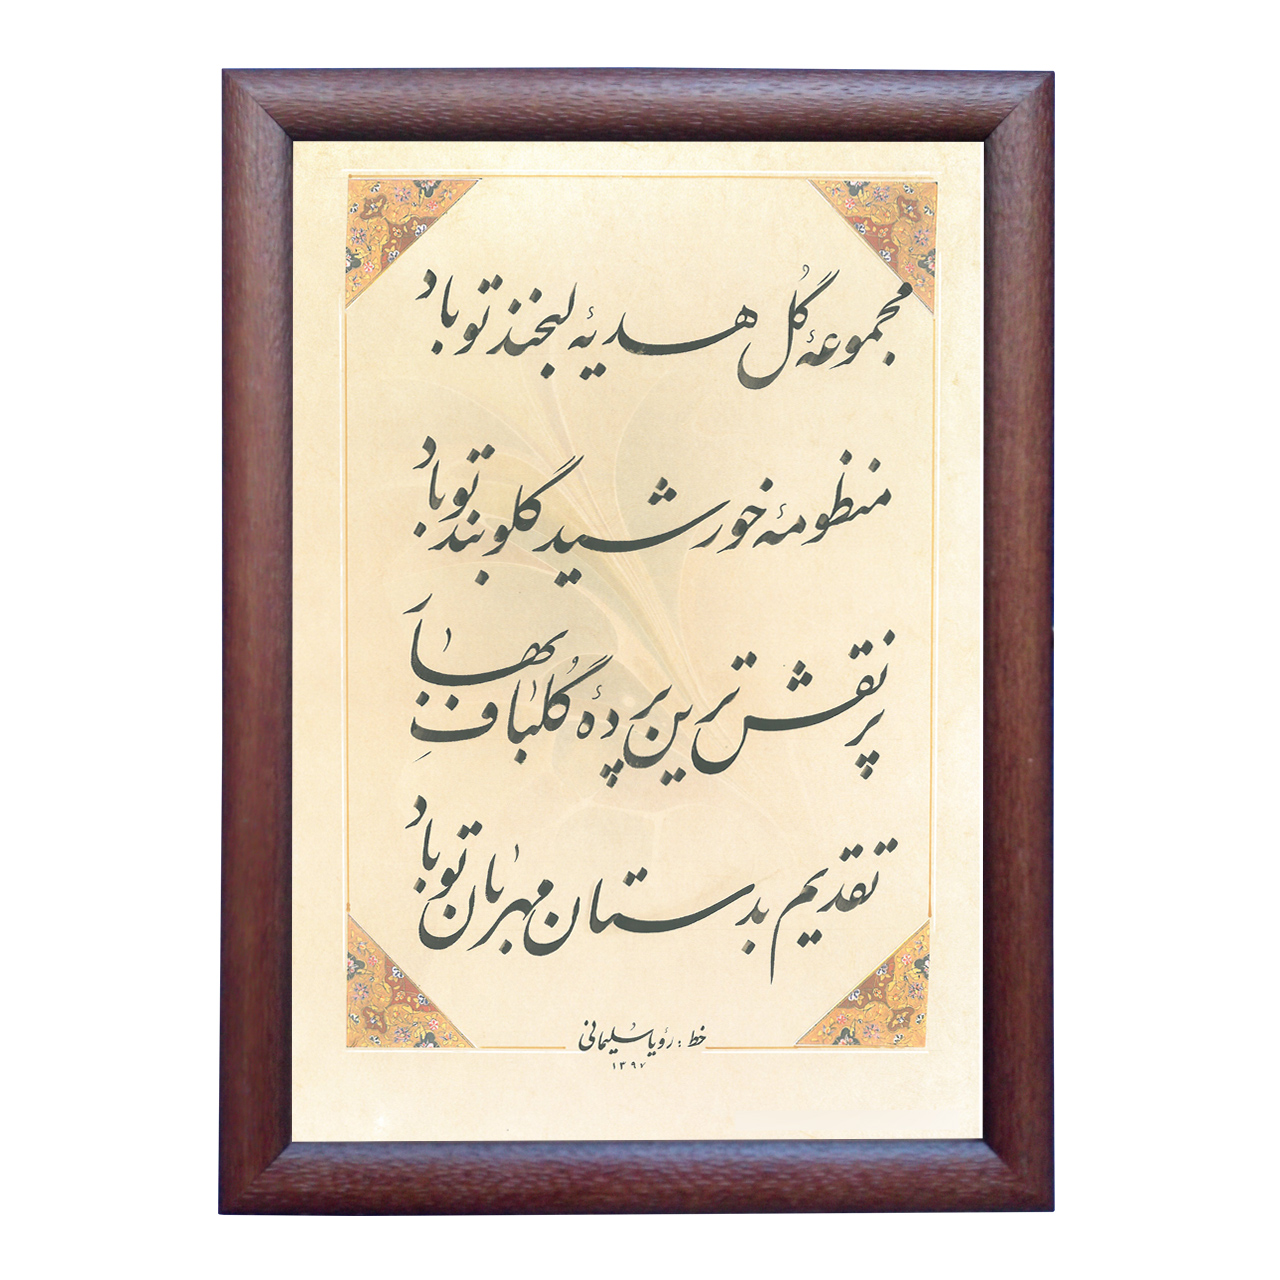 مجموعهٔ گُل هدیهٔ لبخند تو باد
منظومهٔ خورشید گلوبند تو باد
پر نقش ترین پردهٔ گُلبافِ بهار
تقدیم بدستان مهربان تو باد
خط : رؤیا سلیمانی
۱۳۹۷